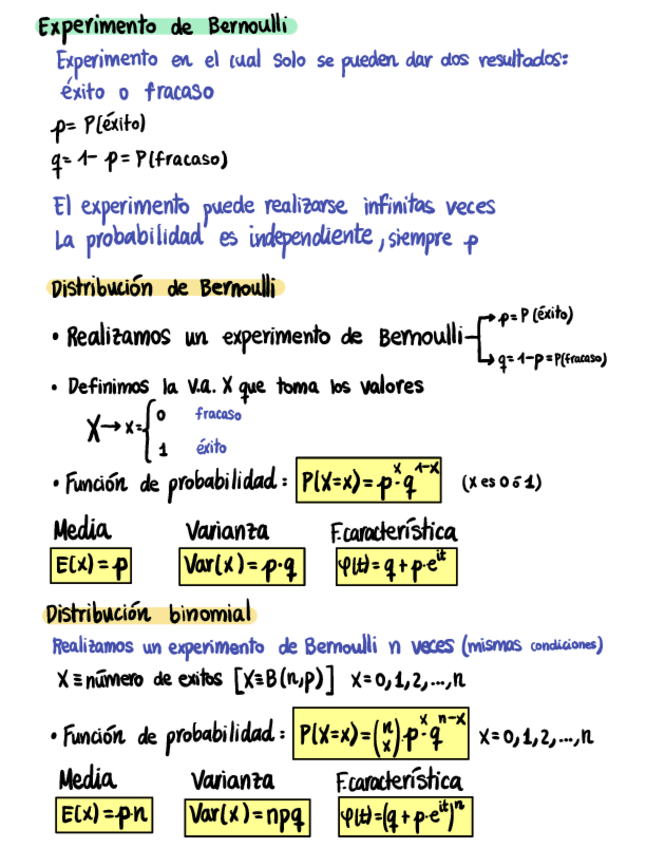 Experimento de Bernoulli
Experimento en el cual solo se pueden dar dos resultados:
éxito o fracaso
p= P(éxito)
q= 1- p = P(fracaso)
El experimento puede realizarse infinitas veces
La probabilidad es independiente, siempre p
Distribución de Bernoulli
• Realizamos un experimento de Bernoulli → p= P(éxito)
→ q= 1-p=P(fracaso)
• Definimos la v.a. X que toma los valores
X→x={ 0 fracaso
1 éxito
• Función de probabilidad: P(X=x)= p^x·q^(1-x) (x es 0 ó 1)
Media Varianza F.característica
E(x)=p Var(x)=p·q φ(t)=q+p·e^it
Distribución binomial
Realizamos un experimento de Bernoulli n veces (mismas condiciones)
X≡número de exitos [X≡B(n,p)] X=0,1,2,...,n
• Función de probabilidad: P(X=x)=(n x)·p^x·q^(n-x) X=0,1,2,...,n
Media Varianza F.característica
E(x)=p·n Var(x)=npq φ(t)=(q+p·e^it)^n